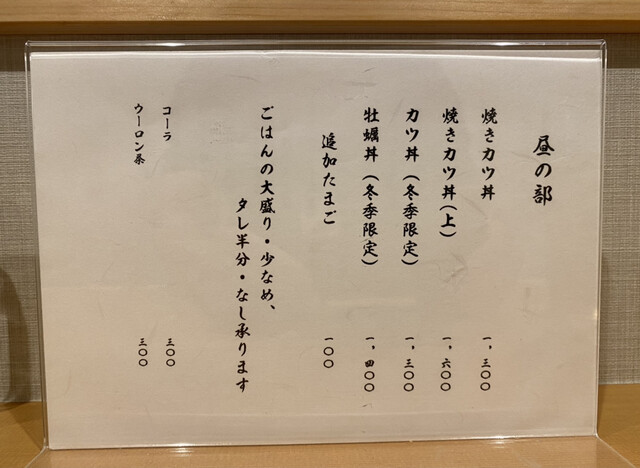 昼の部
焼きカツ丼 一,三〇〇
焼きカツ丼(上) 一,六〇〇
カツ丼(冬季限定) 一,三〇〇
牡蠣丼(冬季限定) 一,四〇〇
追加たまご 一〇〇
ごはんの大盛り・少なめ、
タレ半分・なし承ります
コーラ 三〇〇
ウーロン茶 三〇〇